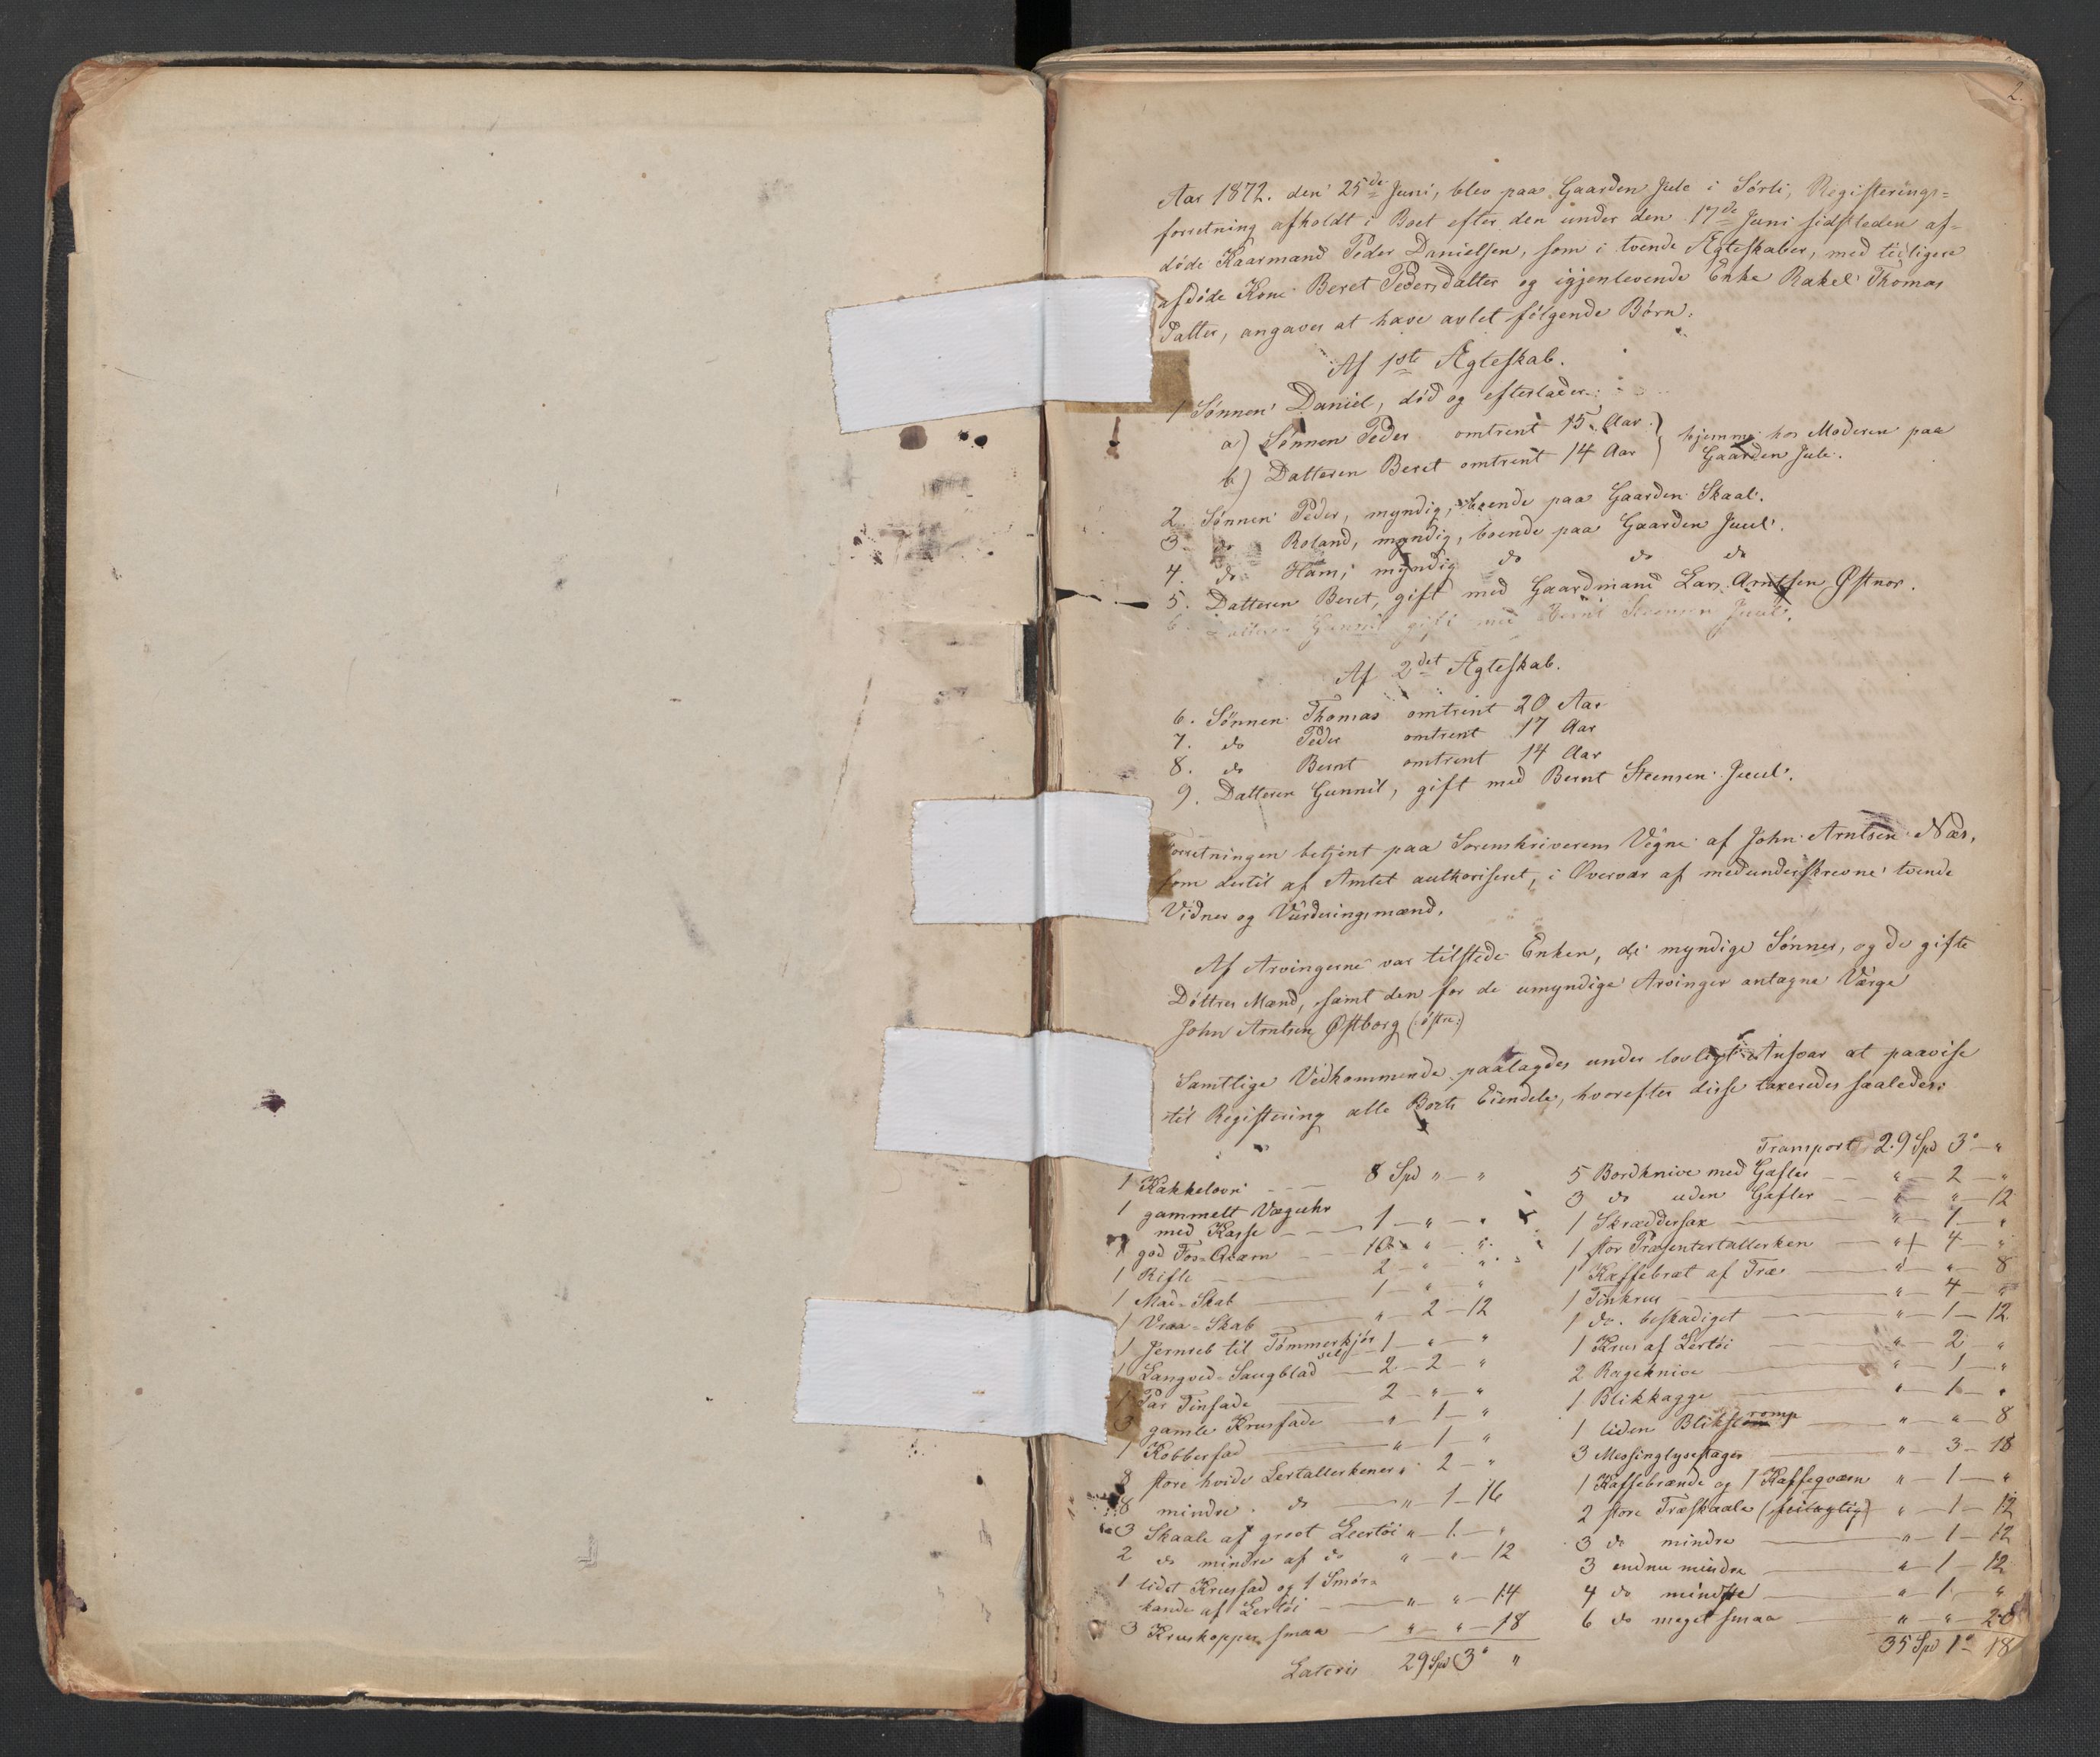 2.
Aar 1872. den 25de Juni, blev paa Gaarden Jule i Sørli, Registerings-
forretning afholdt i Boet efter den under den 17de Juni sidstleden af-
døde Kaarmand Peder Danielsen, som i tvende Ægteskaber, med tidligere
afdøde Kone Beret Pedersdatter og igjenlevende Enke Rakel Thomas
Datter, angaves at have avlet følgende Børn.
Af 1ste Ægteskab.
1 Sønnen Daniel, død og efterlader:
a) Sønnen Peder omtrent 15 Aar } hjemme hos Moderen paa
b) Datteren Beret omtrent 14 Aar } Gaarden Jule.
2. Sønnen Peder, myndig, boende paa Gaarden Skaal.
3 do Roland, myndig, boende paa Gaarden Juul.
4. do Hans, myndig do do do
5. Datteren Beret, gift med Gaardmand Lars Arntsen Østnor.
6. Datteren Gunnil gift med Bernt Steensen Juul.
Af 2det Ægteskab.
6. Sønnen Thomas omtrent 20 Aar
7. do Peder omtrent 17 Aar
8. do Bernt omtrent 14 Aar
9. Datteren Gunnil, gift med Bernt Steensen Juul.
Forretningen betjent paa Sorenskriverens Vegne af John Arntsen Næs,
som dertil af Amtet authoriseret, i Overvær af medunderskrevne tvende
Vidner og Vurderingsmænd.
Af Arvingerne var tilstede Enken, de myndige Sønner, og de gifte
Døttres Mænd, samt den for de umyndige Arvinger antagne Værge
John Arntsen Østborg (østre)
Samtlige Vedkommende paalagdes under lovligt Ansvar at paavise
til Registering alle Boets Eiendele, hvorefter disse taxeredes saaledes:
1 Kakkelovn 8 Spd " — "
1 gammelt Væguhr
med Kasse — 1 — " — "
1 god Fos-Qværn — 10 " — "
1 Rifle — 2 — " — "
1 Mad-Skab — 1 — " — "
1 Vraa-Skab — " 2 — 12
1 Jernreb til Tømmerkjør 1 — " — "
1 Langved-Saugblad — 2 — 2 — "
1 Par Tinfade — 2 — " — "
3 gamle Krusfade — " — 1 — "
1 Kobberfad — " — 1 — "
8 store hvide Lertallerkener " 2 — "
8 mindre do — " — 1 — 16
3 Skaale af groet Leertøi " — 1 — "
2 do mindre af do " — " — 12
1 lidet Krusfad og 1 Smør-
kande af Lertøi — " — " — 14
3 Kruskopper smaa — " — " — 18
Lateris 29 Spd 3 "
Transport 29 Spd 3 — "
5 Bordknive med Gafler — " — 2 — "
3 do uden Gafler — " — " — 12
1 Skræddersax — " — 1 — "
1 stor Præsentertallerken — " — 4 — "
1 Kaffebræt af Træ — " — " — 8
1 Tinkrus — " — 4 — "
1 do. beskadiget — " — 1 — 12
1 Krus af Lertøi — " — 2 — "
2 Rageknive — " — 1 — "
1 Blikkagge — " — 1 — "
1 liden Blikstromp — " — " — 8
3 Messinglysestager — " — 3 — 18
1 Kaffebrænde og 1 Kaffeqværn " — 1 — "
2 store Træskaale (feilagtig) " — 1 — 12
3 do mindre — " — 1 — 12
3 endnu mindre — " — 1 — 12
4 do mindste — " — 1 — "
6 do meget smaa — " — " — 20
35 Spd 1 — 18